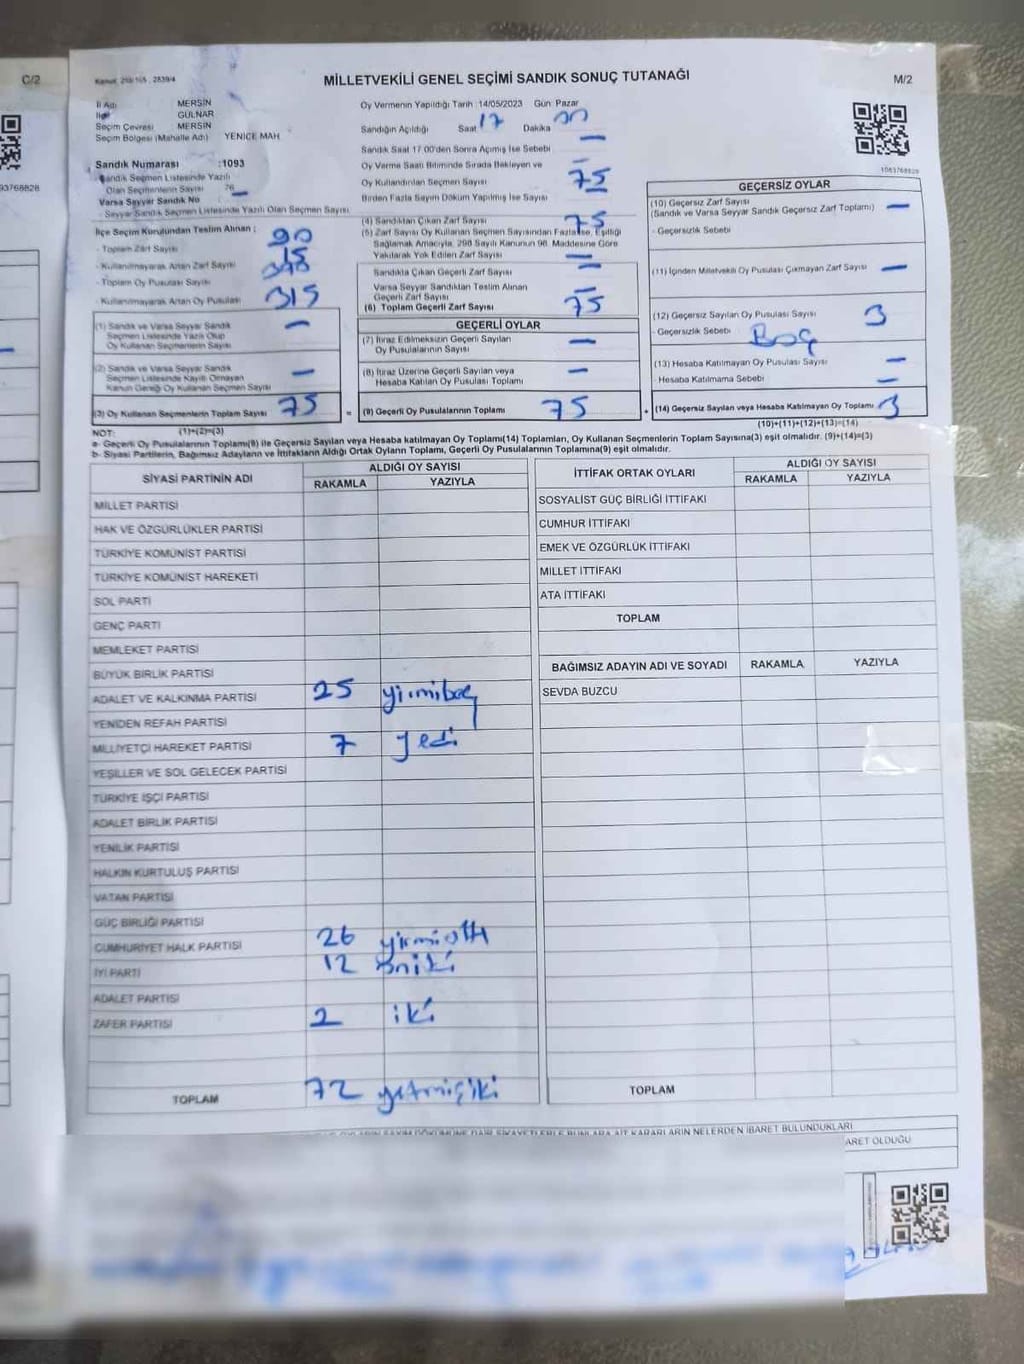 C/2
93768828
Kanun: 298/105 , 2839/4
MİLLETVEKİLİ GENEL SEÇİMİ SANDIK SONUÇ TUTANAĞI
M/2
İl Adı MERSİN
İlçe GÜLNAR
Seçim Çevresi MERSİN
Seçim Bölgesi (Mahalle Adı) YENİCE MAH
Sandık Numarası :1093
Sandık Seçmen Listesinde Yazılı
Olan Seçmenlerin Sayısı 76
Varsa Seyyar Sandık No
- Seyyar Sandık Seçmen Listesinde Yazılı Olan Seçmen Sayısı
İlçe Seçim Kurulundan Teslim Alınan ;
- Toplam Zarf Sayısı 90
- Kullanılmayarak Artan Zarf Sayısı 15
- Toplam Oy Pusulası Sayısı
- Kullanılmayarak Artan Oy Pusulası 315
(1) Sandık ve Varsa Seyyar Sandık
Seçmen Listesinde Yazılı Olup
Oy Kullanan Seçmenlerin Sayısı —
(2) Sandık ve Varsa Seyyar Sandık
Seçmen Listesinde Kayıtlı Olmayan
Kanun Gereği Oy Kullanan Seçmen Sayısı —
(3) Oy Kullanan Seçmenlerin Toplam Sayısı 75
(1)+(2)=(3)
Oy Vermenin Yapıldığı Tarih :14/05/2023 Gün: Pazar
Sandığın Açıldığı Saat 17 Dakika 00
Sandık Saat 17:00'den Sonra Açılmış İse Sebebi —
Oy Verme Saati Bitiminde Sırada Bekleyen ve
Oy Kullandırılan Seçmen Sayısı 75
Birden Fazla Sayım Döküm Yapılmış İse Sayısı —
(4) Sandıktan Çıkan Zarf Sayısı 75
(5) Zarf Sayısı Oy Kullanan Seçmen Sayısından Fazla ise, Eşitliği
Sağlamak Amacıyla, 298 Sayılı Kanunun 98. Maddesine Göre
Yakılarak Yok Edilen Zarf Sayısı —
Sandıkta Çıkan Geçerli Zarf Sayısı —
Varsa Seyyar Sandıktan Teslim Alınan
Geçerli Zarf Sayısı —
(6) Toplam Geçerli Zarf Sayısı 75
GEÇERLİ OYLAR
(7) İtiraz Edilmeksizin Geçerli Sayılan
Oy Pusulalarının Sayısı —
(8) İtiraz Üzerine Geçerli Sayılan veya
Hesaba Katılan Oy Pusulası Toplamı —
= (9) Geçerli Oy Pusulalarının Toplamı 75
1093768828
GEÇERSİZ OYLAR
(10) Geçersiz Zarf Sayısı
(Sandık ve Varsa Seyyar Sandık Geçersiz Zarf Toplamı) —
- Geçersizlik Sebebi
(11) İçinden Milletvekili Oy Pusulası Çıkmayan Zarf Sayısı —
(12) Geçersiz Sayılan Oy Pusulası Sayısı 3
- Geçersizlik Sebebi Boş
(13) Hesaba Katılmayan Oy Pusulası Sayısı —
- Hesaba Katılmama Sebebi —
+ (14) Geçersiz Sayılan veya Hesaba Katılmayan Oy Toplamı 3
(10)+(11)+(12)+(13)=(14)
NOT:
a- Geçerli Oy Pusulalarının Toplamı(9) ile Geçersiz Sayılan veya Hesaba katılmayan Oy Toplamı(14) Toplamları, Oy Kullanan Seçmenlerin Toplam Sayısına(3) eşit olmalıdır. (9)+(14)=(3)
b- Siyasi Partilerin, Bağımsız Adayların ve İttifakların Aldığı Ortak Oyların Toplamı, Geçerli Oy Pusulalarının Toplamına(9) eşit olmalıdır.
SİYASİ PARTİNİN ADI
ALDIĞI OY SAYISI
RAKAMLA YAZIYLA
MİLLET PARTİSİ
HAK VE ÖZGÜRLÜKLER PARTİSİ
TÜRKİYE KOMÜNİST PARTİSİ
TÜRKİYE KOMÜNİST HAREKETİ
SOL PARTİ
GENÇ PARTİ
MEMLEKET PARTİSİ
BÜYÜK BİRLİK PARTİSİ
ADALET VE KALKINMA PARTİSİ 25 yirmibeş
YENİDEN REFAH PARTİSİ
MİLLİYETÇİ HAREKET PARTİSİ 7 yedi
YEŞİLLER VE SOL GELECEK PARTİSİ
TÜRKİYE İŞÇİ PARTİSİ
ADALET BİRLİK PARTİSİ
YENİLİK PARTİSİ
HALKIN KURTULUŞ PARTİSİ
VATAN PARTİSİ
GÜÇ BİRLİĞİ PARTİSİ
CUMHURİYET HALK PARTİSİ 26 yirmialtı
İYİ PARTİ 12 oniki
ADALET PARTİSİ
ZAFER PARTİSİ 2 iki
TOPLAM 72 yetmişiki
İTTİFAK ORTAK OYLARI
ALDIĞI OY SAYISI
RAKAMLA YAZIYLA
SOSYALİST GÜÇ BİRLİĞİ İTTİFAKI
CUMHUR İTTİFAKI
EMEK VE ÖZGÜRLÜK İTTİFAKI
MİLLET İTTİFAKI
ATA İTTİFAKI
TOPLAM
BAĞIMSIZ ADAYIN ADI VE SOYADI RAKAMLA YAZIYLA
SEVDA BUZCU
TOPLAM
OYLARIN SAYIM DÖKÜMÜNE DAİR ŞİKAYETLERLE BUNLARA AİT KARARLARIN NELERDEN İBARET BULUNDUKLARI
ARET OLDUĞU